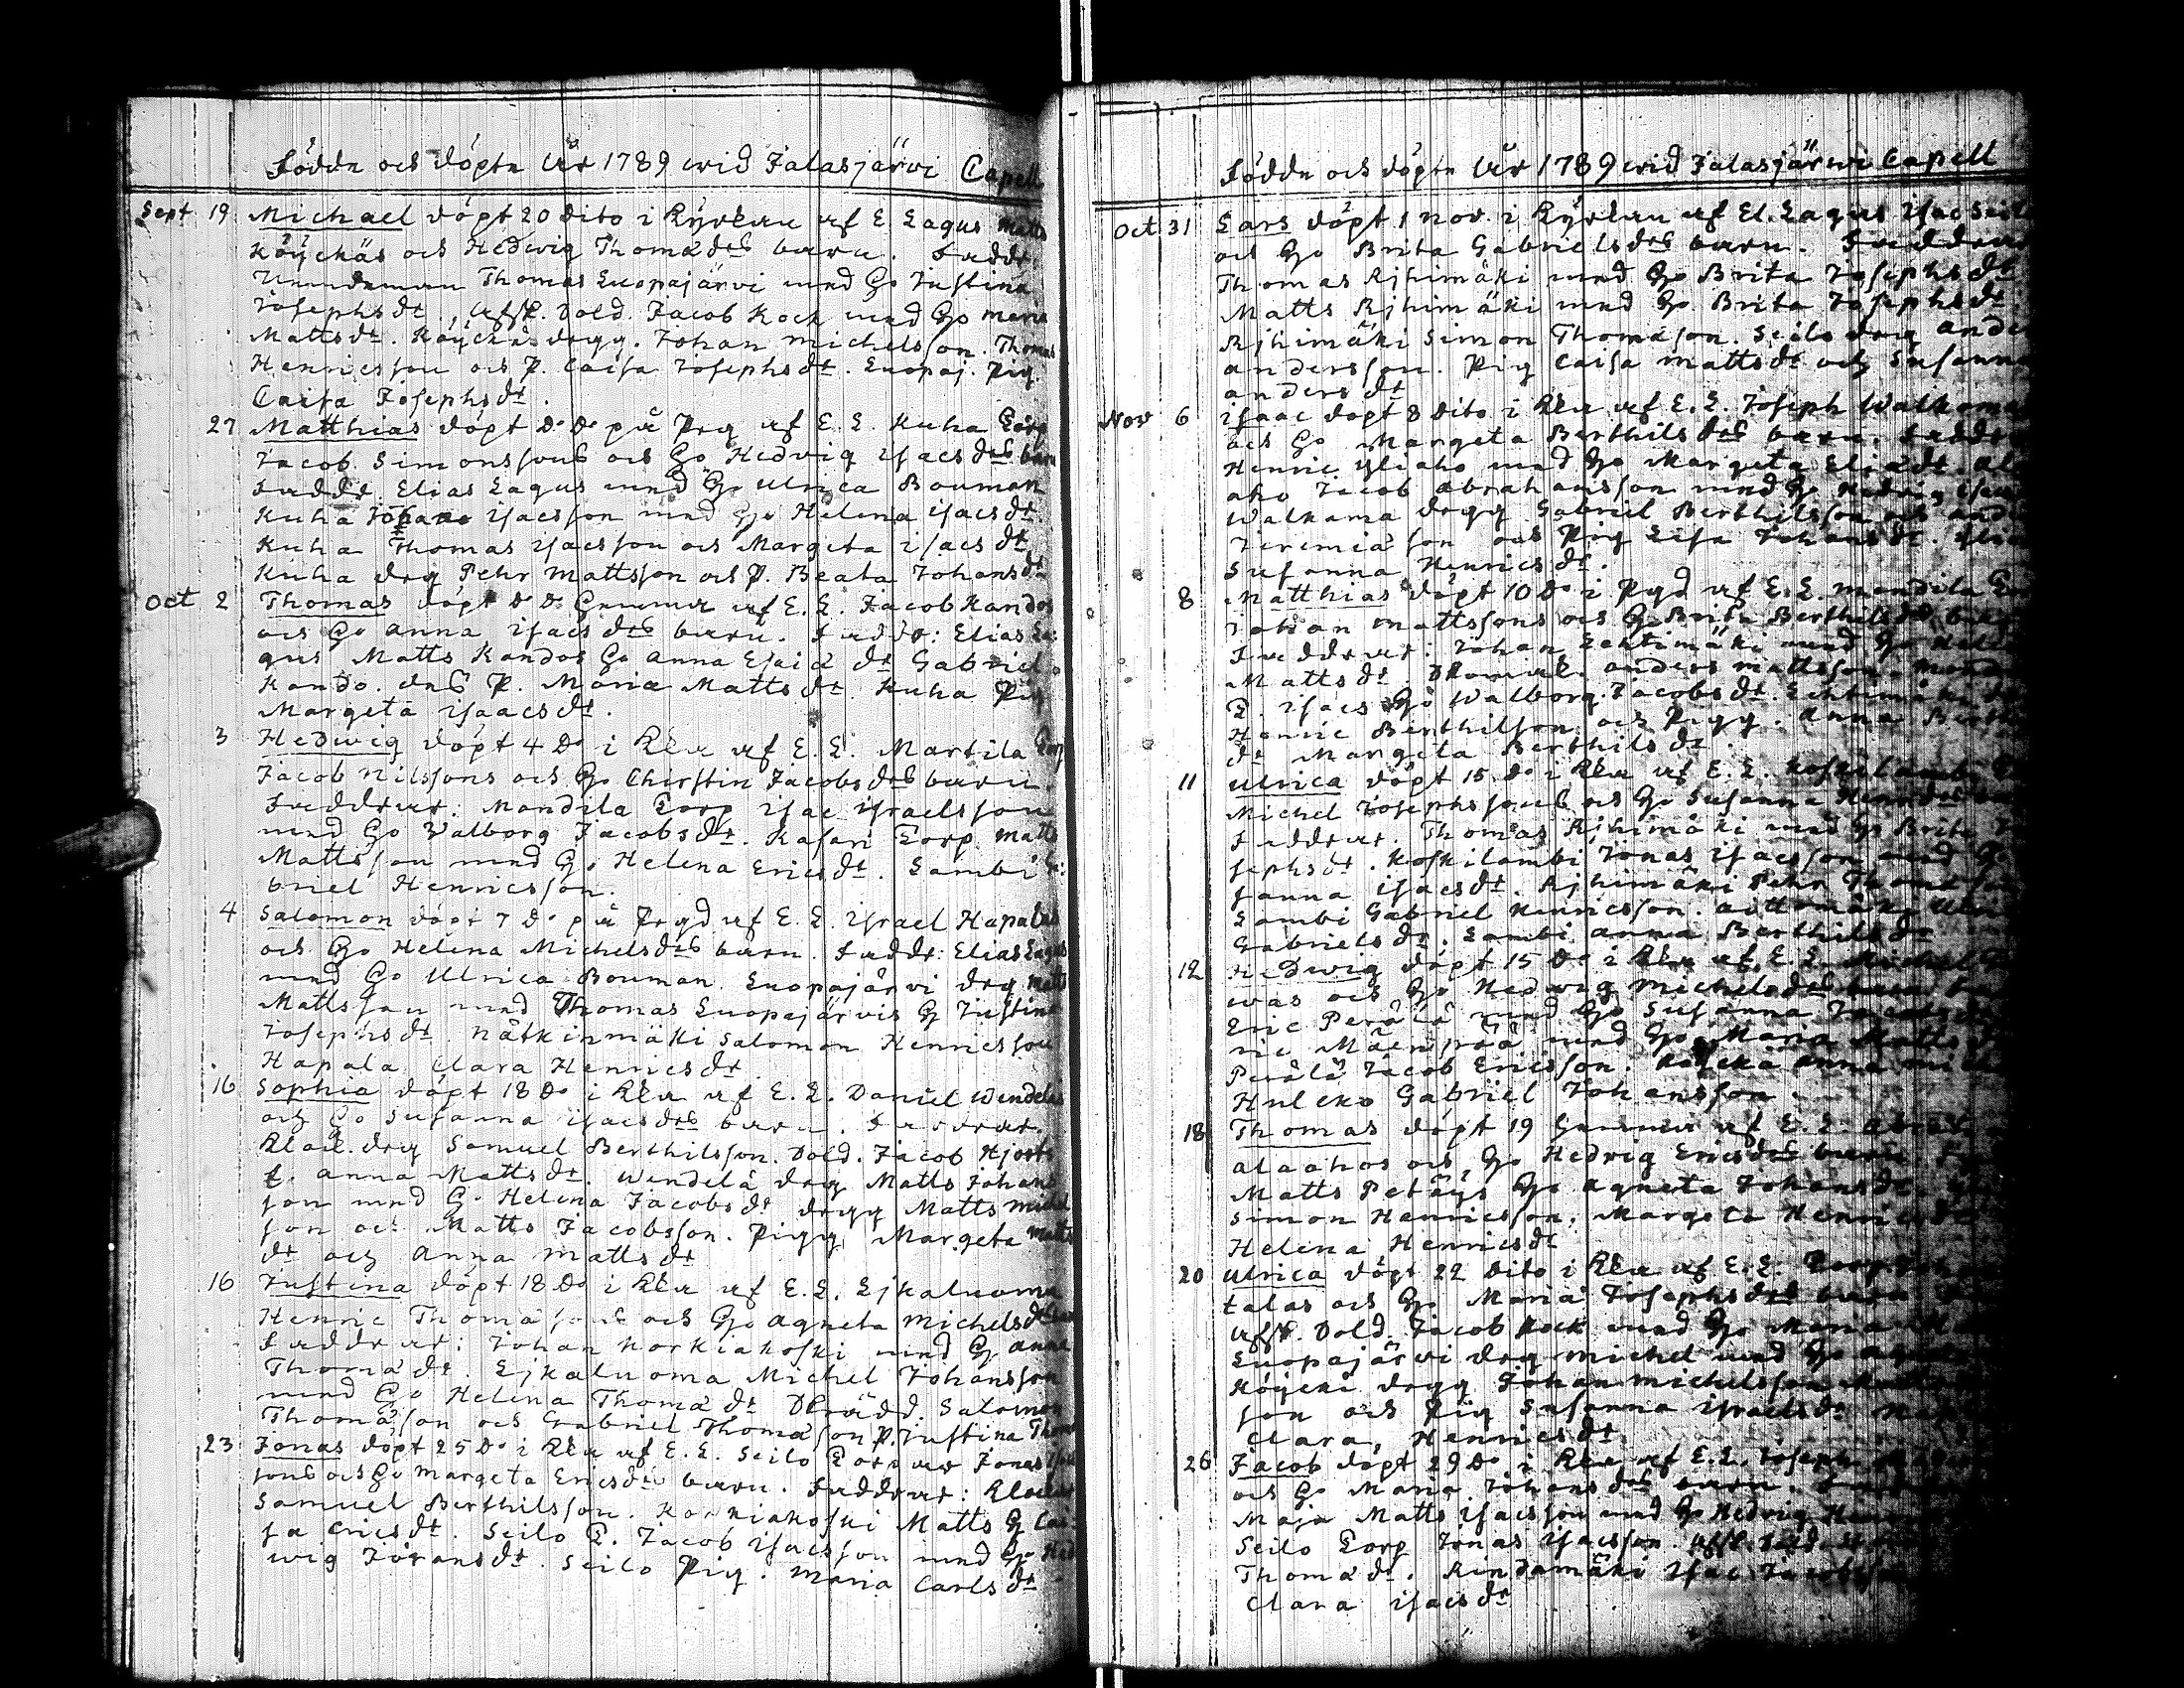 Födde och döpte År 1789 wid Jalasjärvi Capell
Sept 19 Michael döpt 20 Dito i Kÿrkan af E Lagus Matts
Köÿckäs och Hedwig Thomædrs barn. Faddr.
Nemndeman Thomas Luopajärvi med Go Justina
Josephsdr., Afsk. Vold. Jacob Kock med Go Maria
Mattsdr. Köÿckäs drgg. Johan Michelsson. Thomas
Henricsson och P. Caisa Josephsdr. Luopaj. Pig.
Caisa Josephsdr.
27 Matthias döpt Do Do på Prg af E. L. Kuha Torp
Jacob Simonssons och Go Hedvig Isacsdrs barn
Faddr. Elias Lagus med Go Ulrica Bouman
Kuha Isacsson med Go Helena Isacsdr.
Kuha Thomas Isacsson och Margeta Isacsdr
Kuha drg Pehr Mattsson och P. Beata Johansdr
Oct 2 Thomas döpt D. D. Hemma af E. L. Jacob Kandos
och Go Anna Isacsdrs barn. Faddr: Elias La:
gus Matts Kandos Go Anna Esaiæ dr Gabriel
Kando. P. Maria Mattsdr. Kuha Pig
Margeta Isaacsdr.
3 Hedwig döpt 4 Do i Kka af E. L. Martila Torp
Jacob Nilssons och Go Chirstin Jacobsdrs barn.
Faddrar: Mandila Torp Isac Israelsson
med Go Walborg Jacobsdr. Kasari Torp. Matts
Mattsson med Go Helena Ericsdr. Lambi G:
briel Henricsson.
4 Salomon döpt 7 Do på Prgd af E. L. Israel Hapalas
och Go Helena Michelsdrs barn. Faddr: Elias Lagus
med Go Ulrica Bouman. Luopajärvi drg Matts
Mattsson med Thomas Luopajärvis G Justina
Josephsdr. Nätkinmäki Salomon Henricsson
Hapala Clara Henricsdr.
16 Sophia döpt 18 Do i Kka af E. L. Daniel Wendelas
och Go Susanna Isacsdrs barn. Faddrar.
Klock. drg Samuel Berthilsson. Vold. Jacob Hjorts
E. Anna Mattsdr. Wendelä drg Matts Johans
son med Go Helena Jacobsdr drgg Matts Michel
son och Matts Jacobsson. Pigg Margeta Matts
dr och Anna Mattsdr
16 Justina döpt 18 Do i Kka af E. L. Ejkaluoma
Henric Thomæsons och Go Agneta Michelsdrs barn
Faddrar: Johan Korkiakoski med G Anna
Thomædr. Ejkaluoma Michel Johansson
med Go Helena Thomædr. Salomon
Thomæson och Gabriel Thomæson P. Justina Thomæ
23 Jonas döpt 25 Do i Kka af E. L. Seilo Torpar Jonas
sons och Go Margeta Ericsdrs barn. Faddrar: Klockar
Samuel Berthilsson. Korkiakoski Matts G Cai:
sa Ericsdr. Seilo T. Jacob Isacsson med Go Hed
wig Jöransdr. Seilo Pig. Maria Carlsdr
Födde och döpte År 1789 wid Jalasjärwi Capell
Oct 31 Lars döpt 1 Nov. i Kÿrkan af El. Lagus Isac Seil
och Go Brita Gabrielsdrs barn. Faddrar
Thomas Rjhimäki med Go Brita Josephsdr
Matts Rjhimäki med Go Brita Josephsdr.
Rjhimäki Simon Thomæson. Seilo drg Ander
Andersson. Pig Caisa Mattsdr och Susanna
Andersdr
Nov 6 Isaac döpt 8 Dito i Kka af E. L. Joseph Walkama
och Go Margeta Berthilsdrs barn. Faddrar
Henric Yliaho med Go Margeta Eliædr. Ala
aho Jacob Abrahamsson med Go Hedvig Isac
Walkama drgg Gabriel Berthilsson och Andr
Jeremiæson och Pig Lisa Johansdr. Ylia
Susanna Henricsdr.
8 Matthias döpt 10 Do i Pgd af E. L. Mandila
Johan Mattssons och G Brita Berthilsdrs barn
Faddrar: Johan Lehtimäki med Go Hele
Mattsdr. Anders Mattsson. Mand
T. Isacs Go Walborg Jacobsdr. Lehtimäki
Henric Berthilson och Pigg. Anna Berth
dr Margeta Berthilsdr.
11 Ulrica döpt 15 Do i Kka af E. L. Koskilambi
Michel Josephssons och Go Susanna Henricsdrs
Faddrar. Thomas Rjhimäki med Go Brita Jo
sephsdr. Koskilambi Jonas Isacsson med Go
sanna Isacsdr. Rjhimäki Pehr Thomæson
Lambi Gabriel Henricsson.
Gabrielsdr. Lambi Anna Berthilsdr
12 Hedwig döpt 15 Do i Kka af E. L. Michel
was och Go Hedwig Michelsdrs barn
Eric Perälä med Go Susanna Jacobsdr
ric Mäenpää med Go Maria Matts
Perälä Jacob Ericsson. Köÿckä Anna Mich
Hulcko Gabriel Johansson.
18 Thomas döpt 19 Hemma af E. L.
Alaahos och Go Hedvig Ericsdrs barn
Matts Petäÿs Go Agneta Johansdr.
Simon Henricsson, Margeta Henricsdr
Helena Henricsdr
20 Ulrica döpt 22 Dito i Kka af E. L.
talas och Go Maria Josephsdrs barn
Afsk. Vold. Jacob Kock med Go Maria
Luopajärvi drg Michel med Go
Köÿcki drgg Johan Michelsson
son och Pig Susanna Israelsdr
Clara Henricsdr
26 Jacob döpt 29 Do i Kka af E. L. Joseph
och Go Maria Johansdrs barn.
Maja Matts Isacsson med Go Hedvig
Seilo Torp Jonas Isacsson.
Thomædr. Rindamäki Isac Jacobsson
Clara Isacsdr